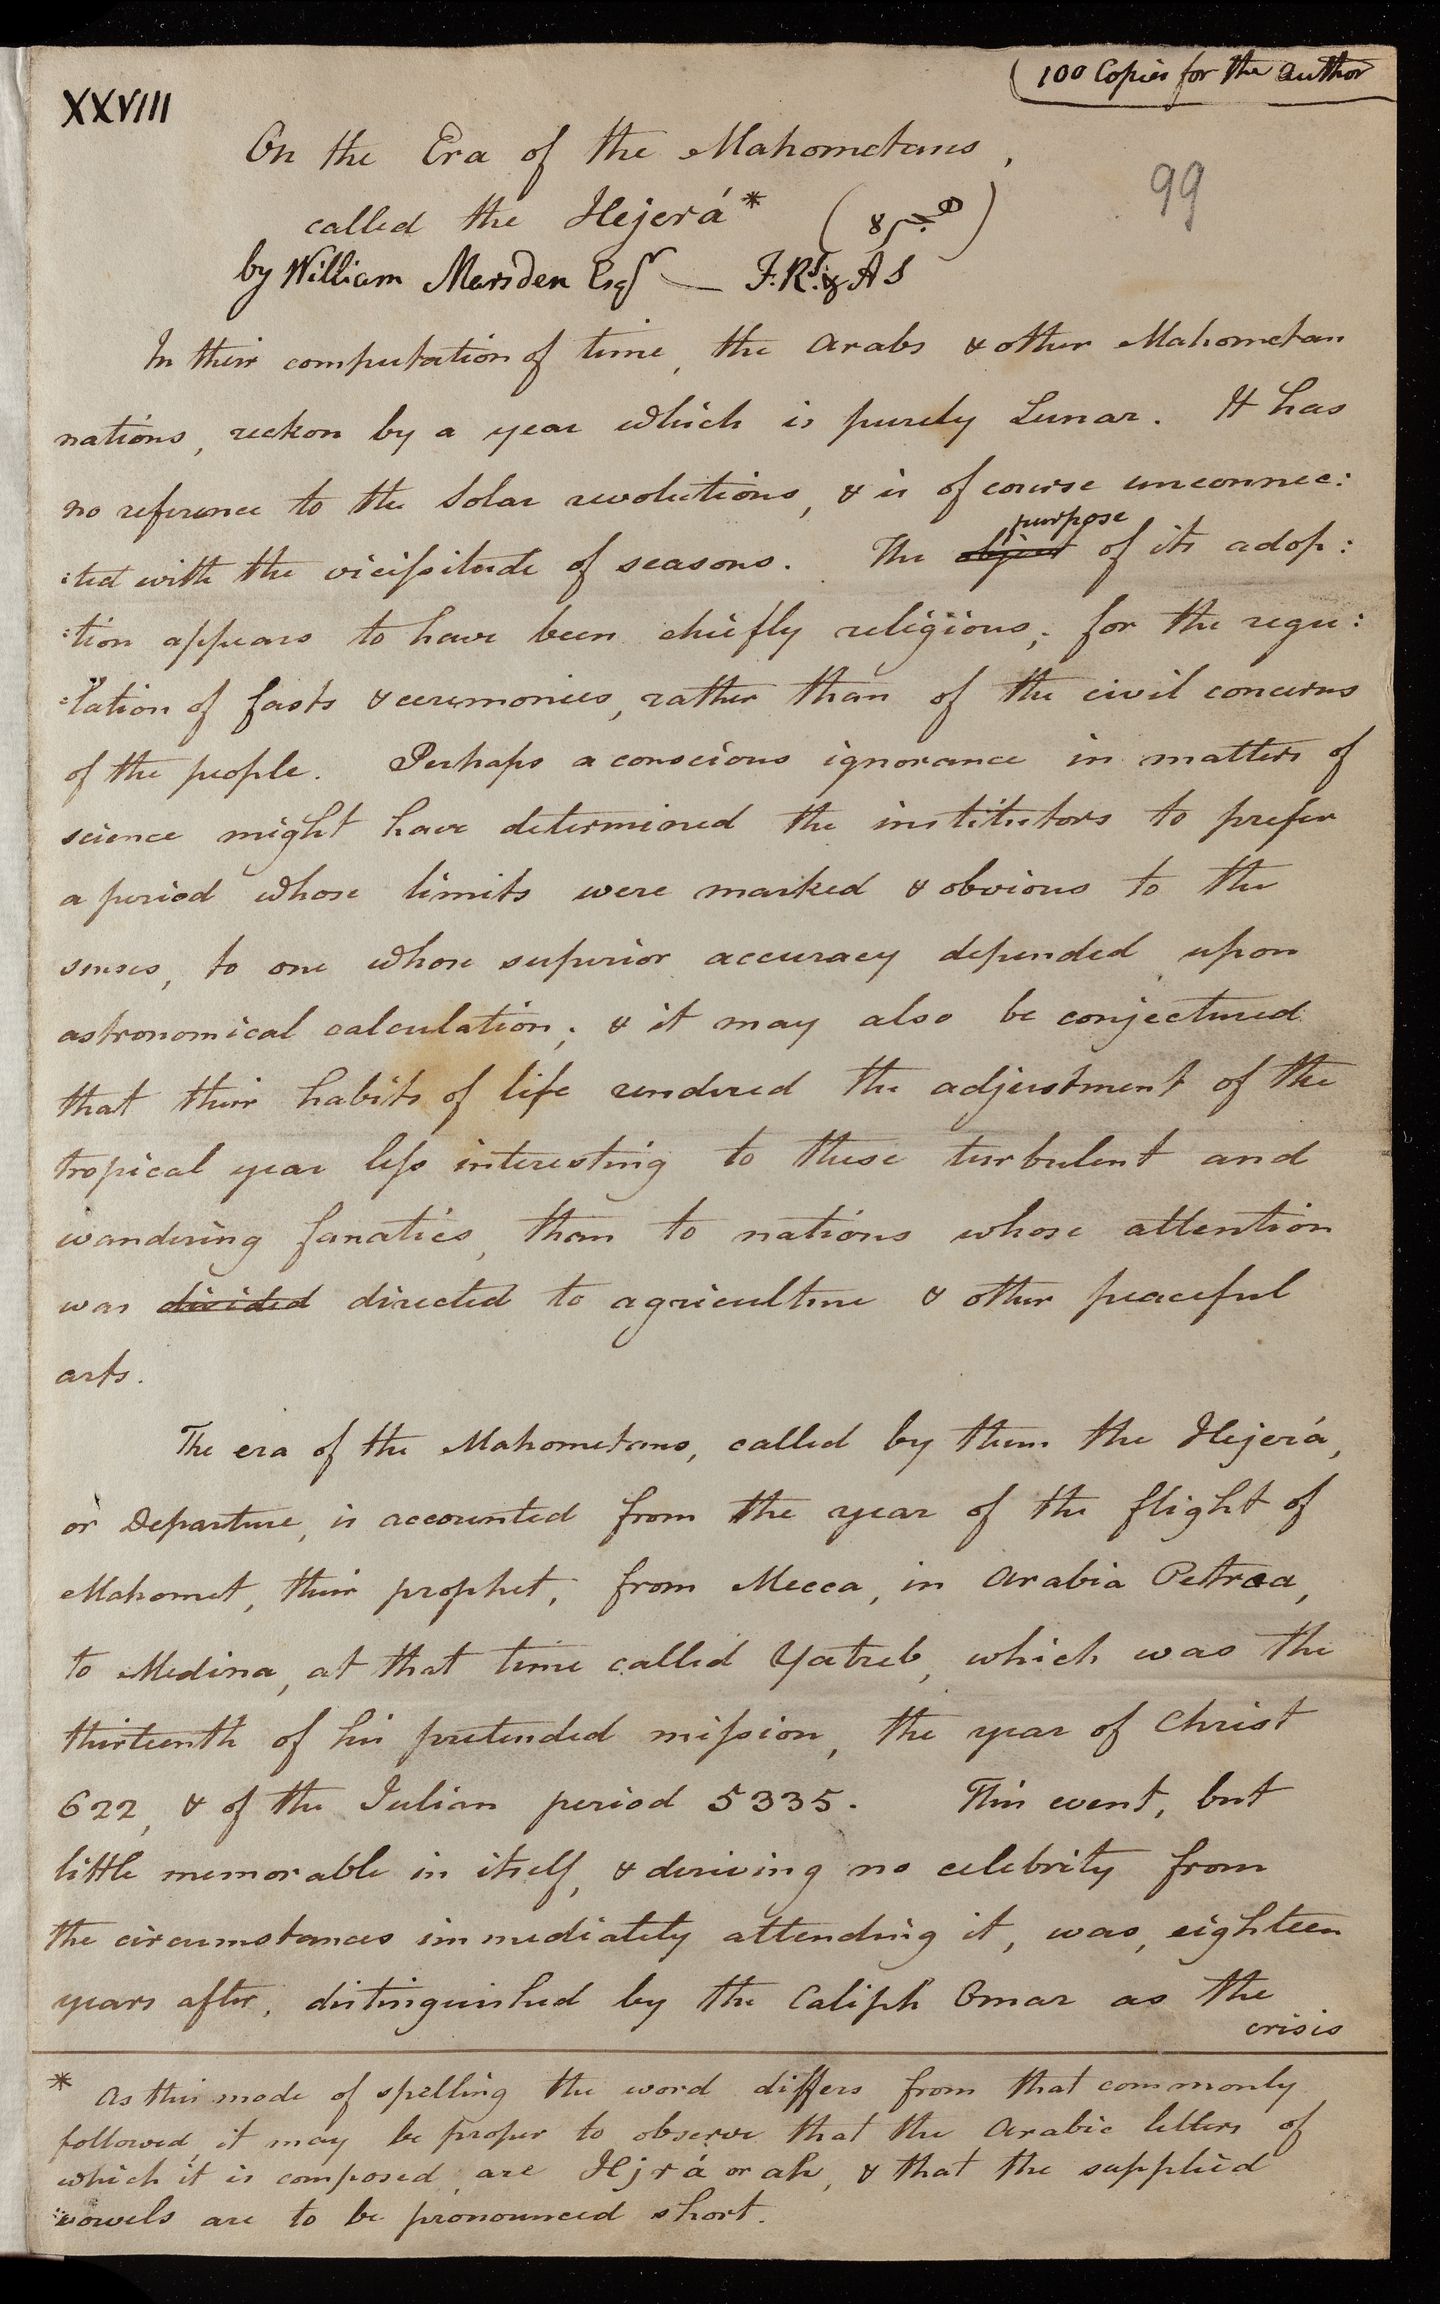 (100 Copies for the author
XXVIII
On the Era of the Mahometans,
99
called the Hejerá*
by William Marsden Esqr — F.R.S. & A S
In their computation of time, the Arabs & other Mahometan
nations, reckon by a year which is purely Lunar. It has
no reference to the Solar revolutions, & is of course unconnec:
purpose
:ted with the vicissitude of seasons. The object of its adop:
:tion appears to have been chiefly religious; for the regu:
:lation of fasts & ceremonies, rather than of the civil concerns
of the people. Perhaps a conscious ignorance in matters of
science might have determined the institutors to prefer
a period whose limits were marked & obvious to the
senses, to one whose superior accuracy depended upon
astronomical calculation; & it may also be conjectured
that their habits of life rendered the adjustment of the
tropical year less interesting to these turbulent and
wandering fanatics, than to nations whose attention
was divided directed to agriculture & other peaceful
arts.
The era of the Mahometans, called by them the Hejerá,
or Departure, is accounted from the year of the flight of
Mahomet, their prophet, from Mecca, in Arabia Petræa,
to Medina, at that time called Yatreb, which was the
thirteenth of his pretended mission, the year of Christ
622, & of the Julian period 5335. This event, but
little memorable in itself, & deriving no celebrity from
the circumstances immediately attending it, was, eighteen
years after, distinguished by the Caliph Omar as the
crisis
* As this mode of spelling the word differs from that commonly
followed, it may be proper to observe that the Arabic letters of
which it is composed, are Hjrá or ah, & that the supplied
:vowels are to be pronounced short.